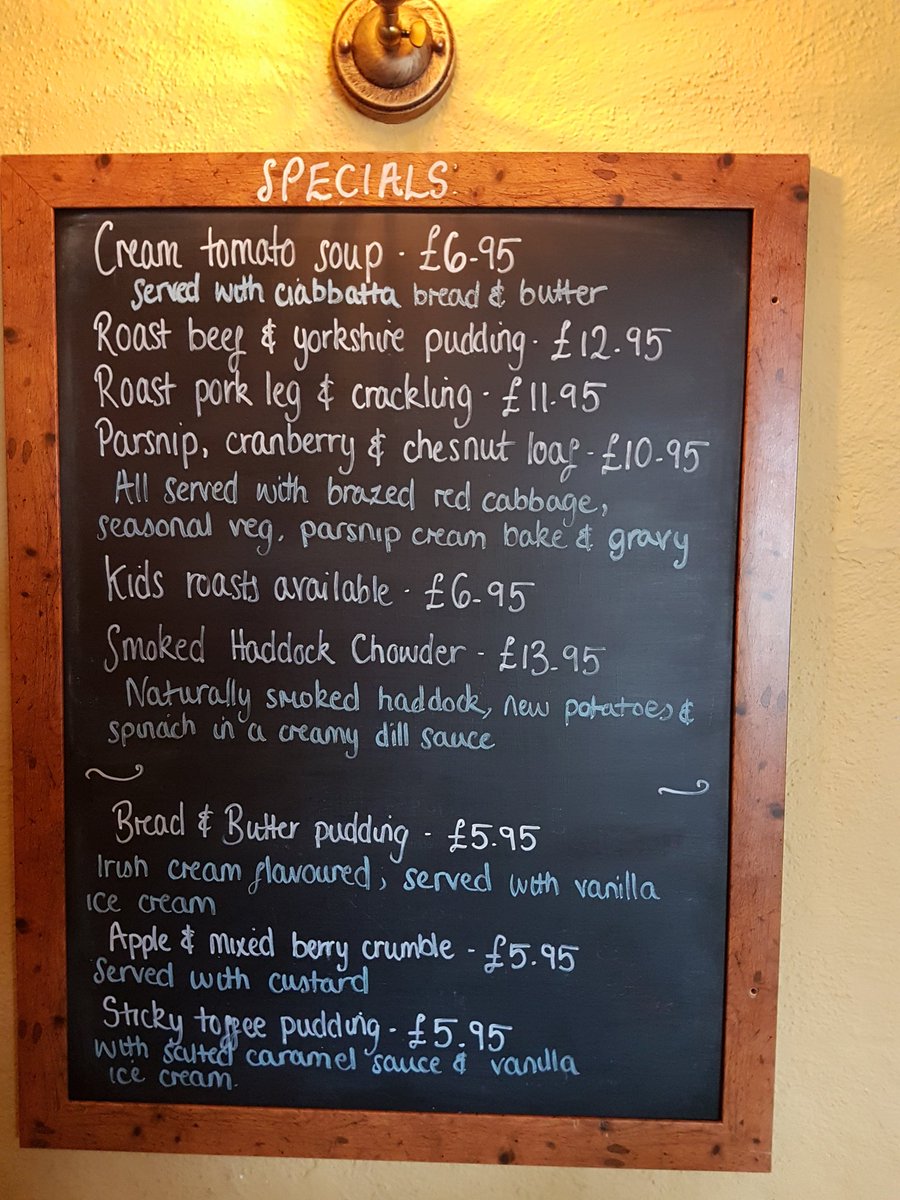 SPECIALS:
Cream tomato soup - £6-95
Served with ciabbatta bread & butter
Roast beef & yorkshire pudding - £12.95
Roast pork leg & crackling - £11.95
Parsnip, cranberry & chesnut loaf - £10-95
All served with brazed red cabbage,
seasonal veg, parsnip cream bake & gravy
Kids roasts available - £6-95
Smoked Haddock Chowder - £13.95
Naturally smoked haddock, new potatoes &
spinach in a creamy dill sauce
Bread & Butter pudding - £5.95
Irish cream flavoured, served with vanilla
ice cream
Apple & mixed berry crumble - £5.95
Served with custard
Sticky toffee pudding - £5.95
with salted caramel sauce & vanilla
ice cream.